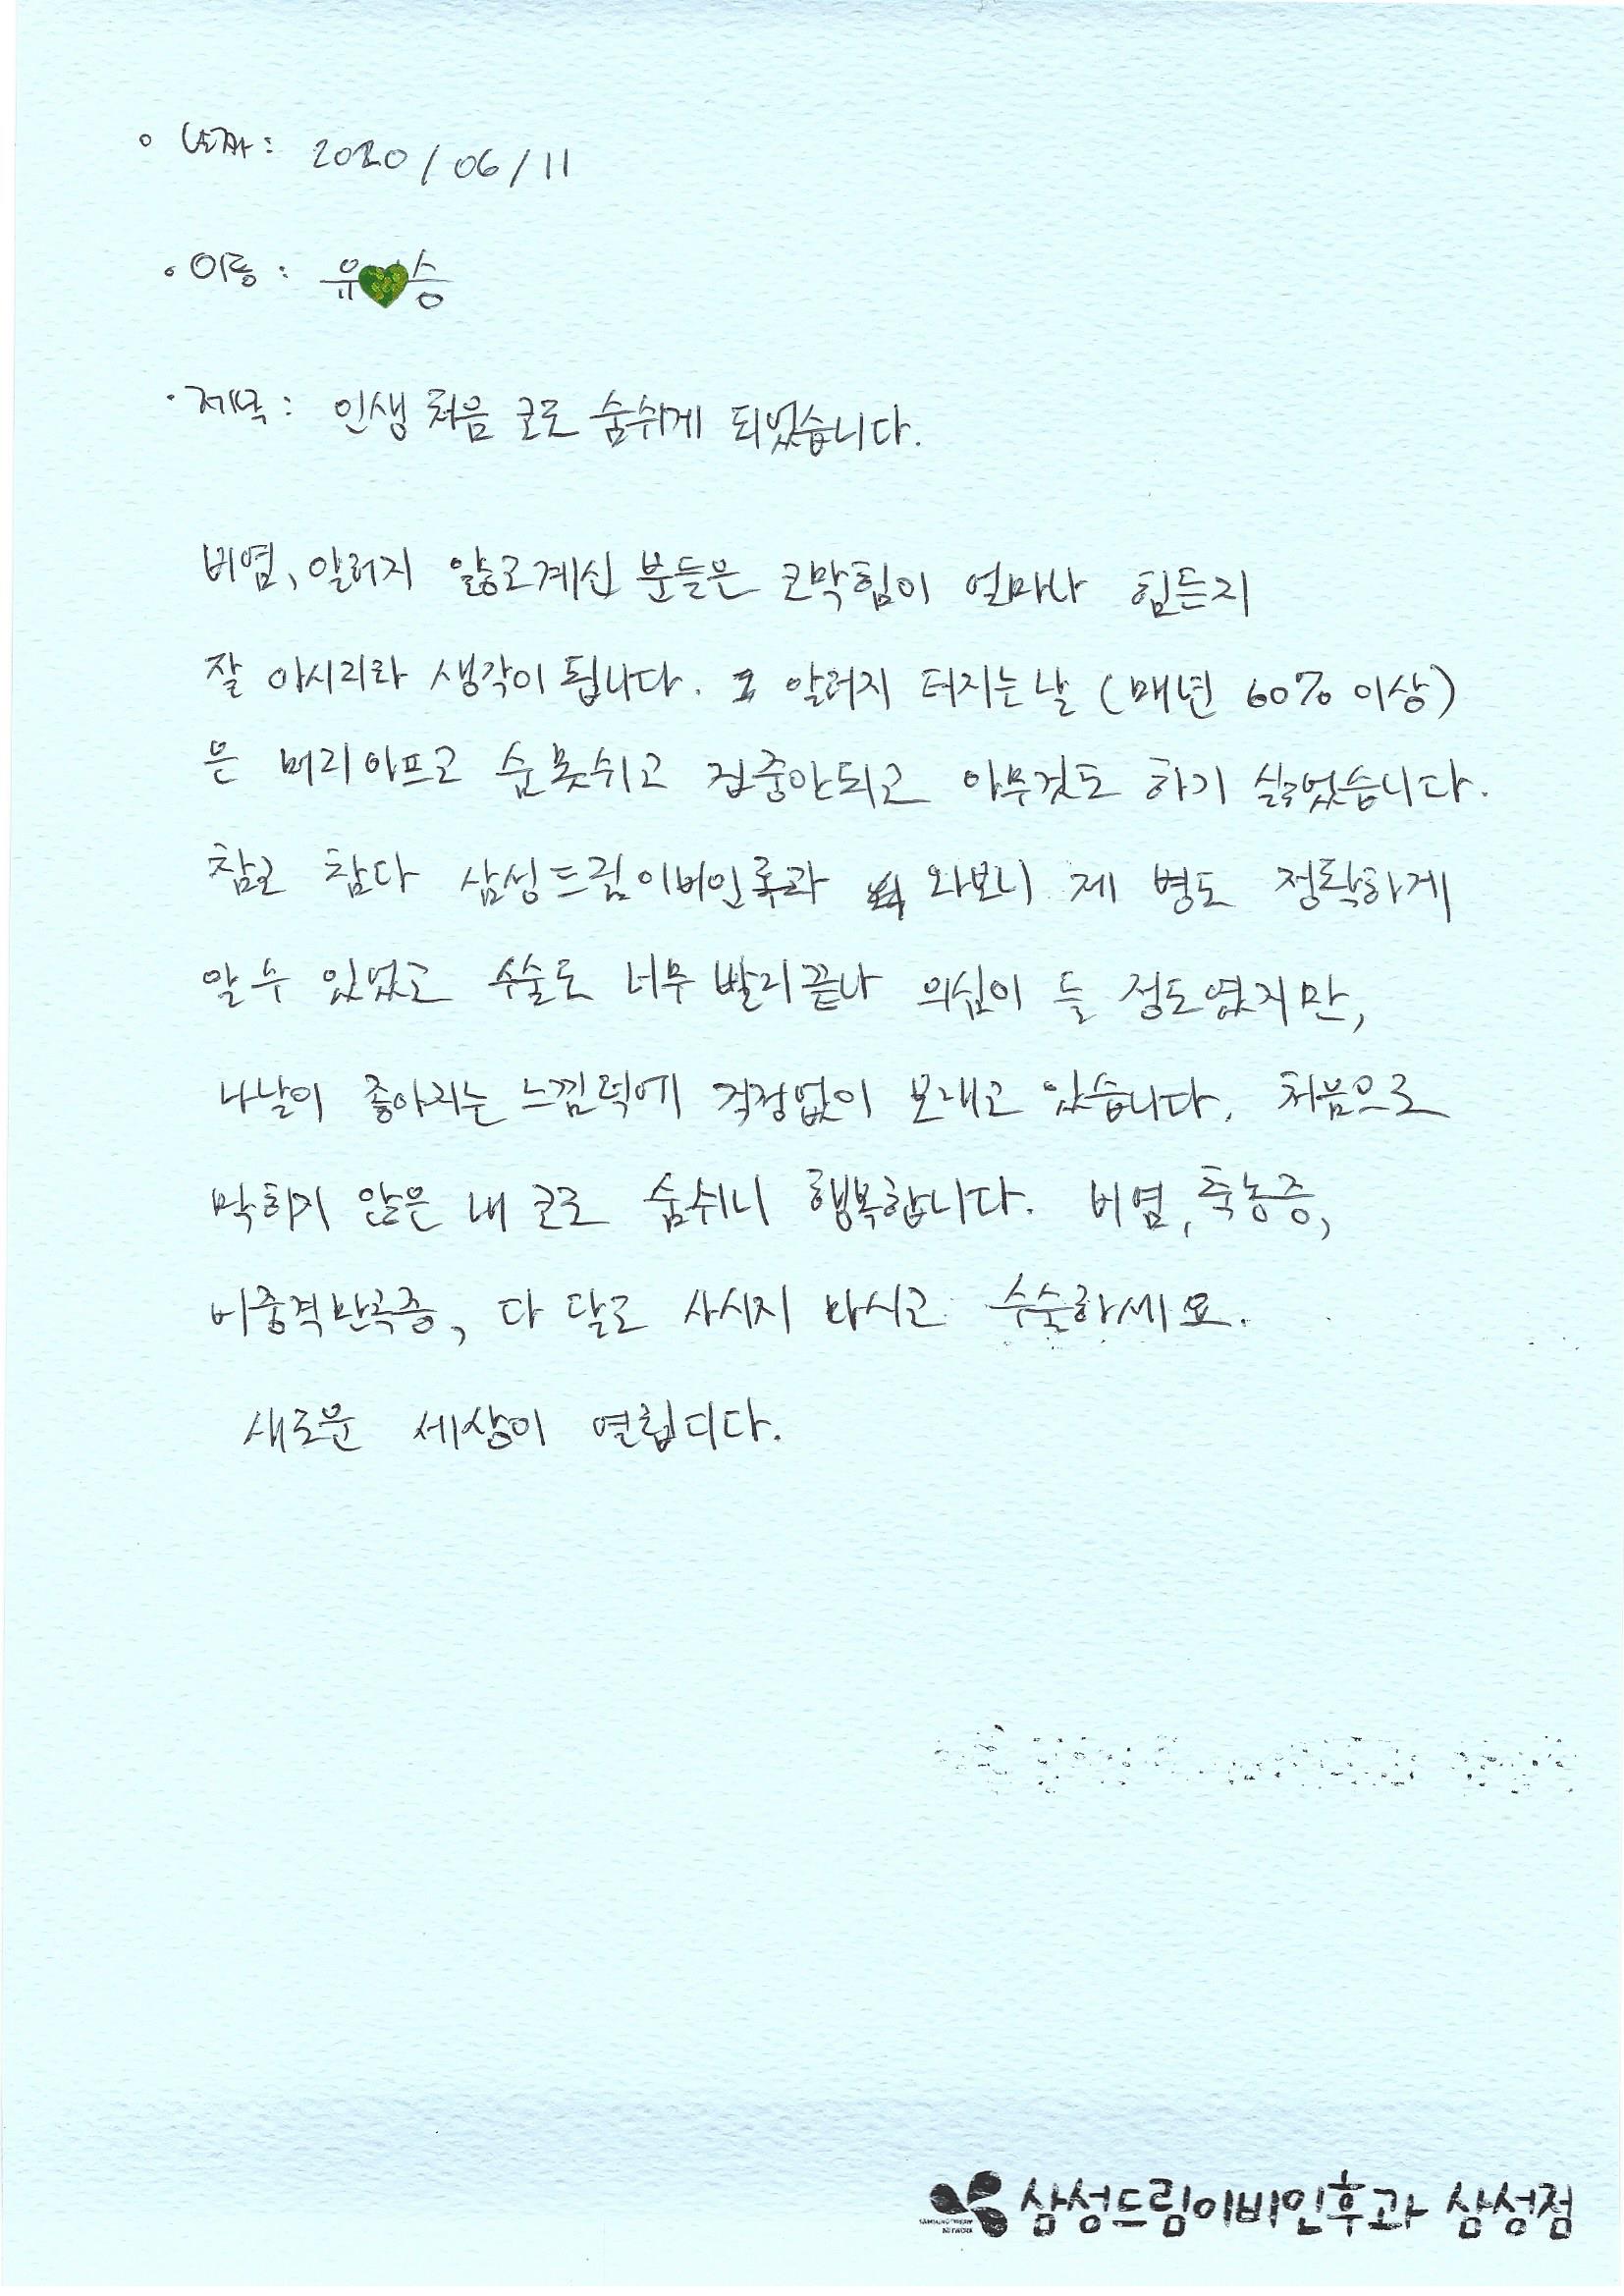 날짜: 2020/06/11
이름: 유♥승
제목: 인생 처음 코로 숨쉬게 되었습니다.
비염, 알러지 앓고계신 분들은 코막힘이 얼마나 힘든지
잘 아시리라 생각이 됩니다. 알러지 터지는날 (매년 60% 이상)
은 머리아프고 숨못쉬고 집중안되고 아무것도 하기 싫었습니다.
참고 참다 삼성드림이비인후과 와보니 제 병도 정확하게
알수 있었고 수술도 너무 빨리끝나 의심이 들 정도였지만,
나날이 좋아지는 느낌덕에 걱정없이 보내고 있습니다. 처음으로
막히지 않은 내 코로 숨쉬니 행복합니다. 비염, 축농증,
비중격만곡증, 다 달고 사시지 마시고 수술하세요.
새로운 세상이 열립디다.
삼성드림이비인후과 삼성점